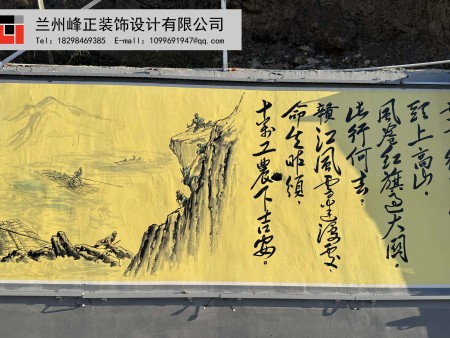 兰州峰正装饰设计有限公司
Tel: 18298469385 E-mall: 1099691947@qq.com
頭上高山，
風卷红旗过大関。
此行何去？
赣江風雪迷漫处。
命令昨颁，
十万工農下吉安。